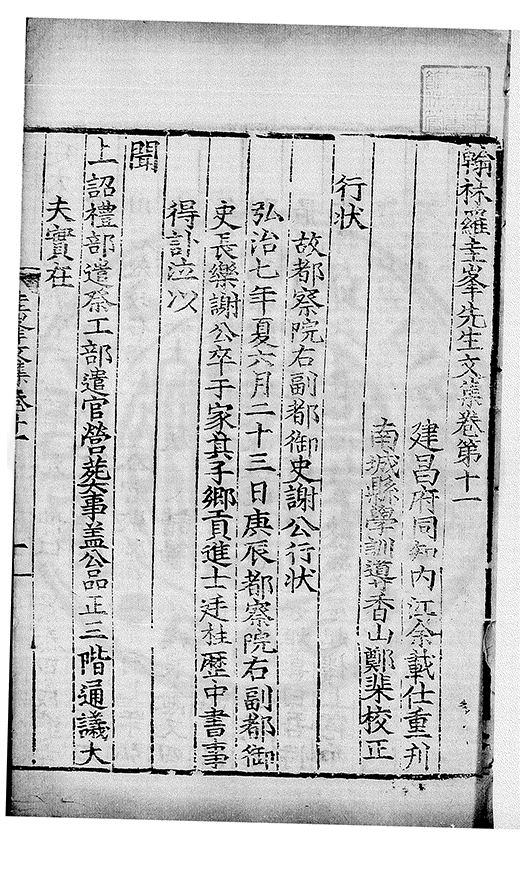 翰林羅圭峯先生文集卷第十一
建昌府同知内江余載仕重刋
南城縣學訓導香山鄭棐校正
行状
故都察院右副都御史謝公行状
弘治七年夏六月二十三日庚辰都察院右副都御
史長樂謝公卒于家其子鄉貢進士廷柱歴中書事
得訃泣以
聞
上詔禮部遣祭工部遣官營葬事盖公品正三階通議大
夫實在
圭峯文集卷十一
一